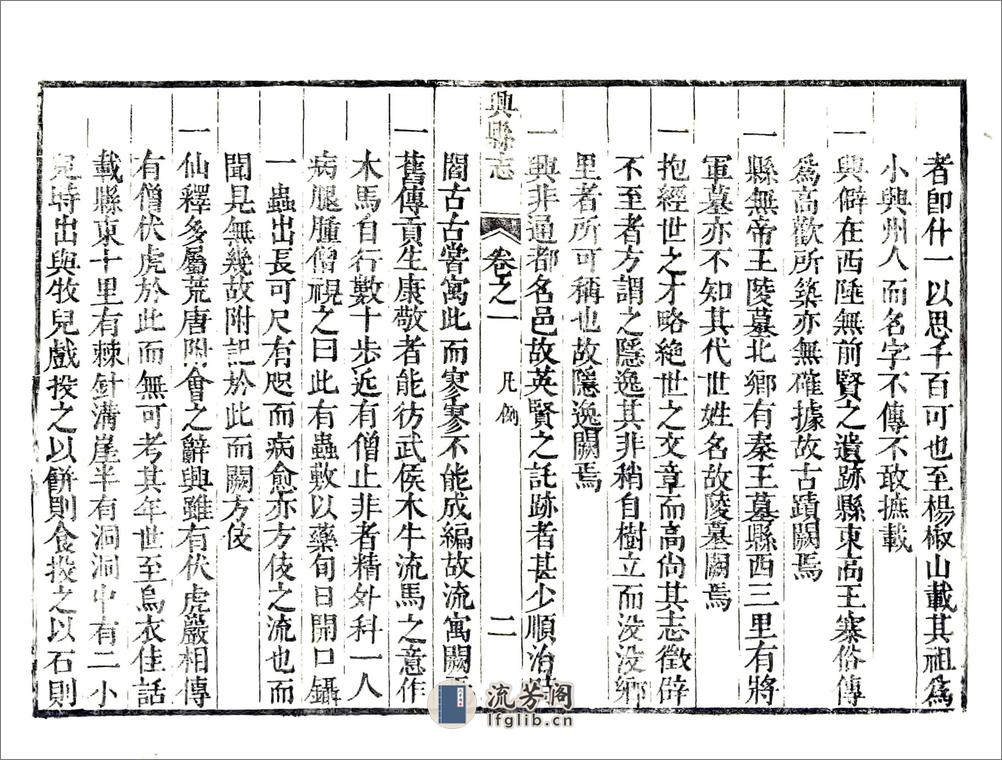 者卽什一以思千百可也至楊椒山載其祖爲
小興州人而名字不傳不敢摭載
一興僻在西陲無前賢之遺跡縣東高王寨俗傳
爲高歡所築亦無確據故古蹟闕焉
一縣無帝王陵墓北鄉有秦王墓縣西三里有將
軍墓亦不知其代世姓名故陵墓闕焉
一抱經世之才略絶世之文章而高尙其志徵辟
不至者方謂之隱逸其非稍自樹立而没没鄉
里者所可稱也故隱逸闕焉
一興非通都名邑故英賢之託跡者甚少順治時
興縣志 卷之一 凡例 二
閻古古嘗寓此而寥寥不能成編故流寓闕
一舊傳貢生康敬者能彷武侯木牛流馬之意作
木馬自行數十步近有僧止非者精外科一人
病腿腫僧視之曰此有蟲敷以藥旬日開口鑷
一蟲出長可尺有咫而病愈亦方伎之流也而
聞見無幾故附記於此而闕方伎
一仙釋多屬荒唐附會之辭興雖有伏虎巖相傳
有僧伏虎於此而無可考其年世至烏衣佳話
載縣東十里有棘針溝崖半有洞洞中有二小
兒時出與牧兒戲投之以餅則食投之以石則
流芳阁
lfglib.cn